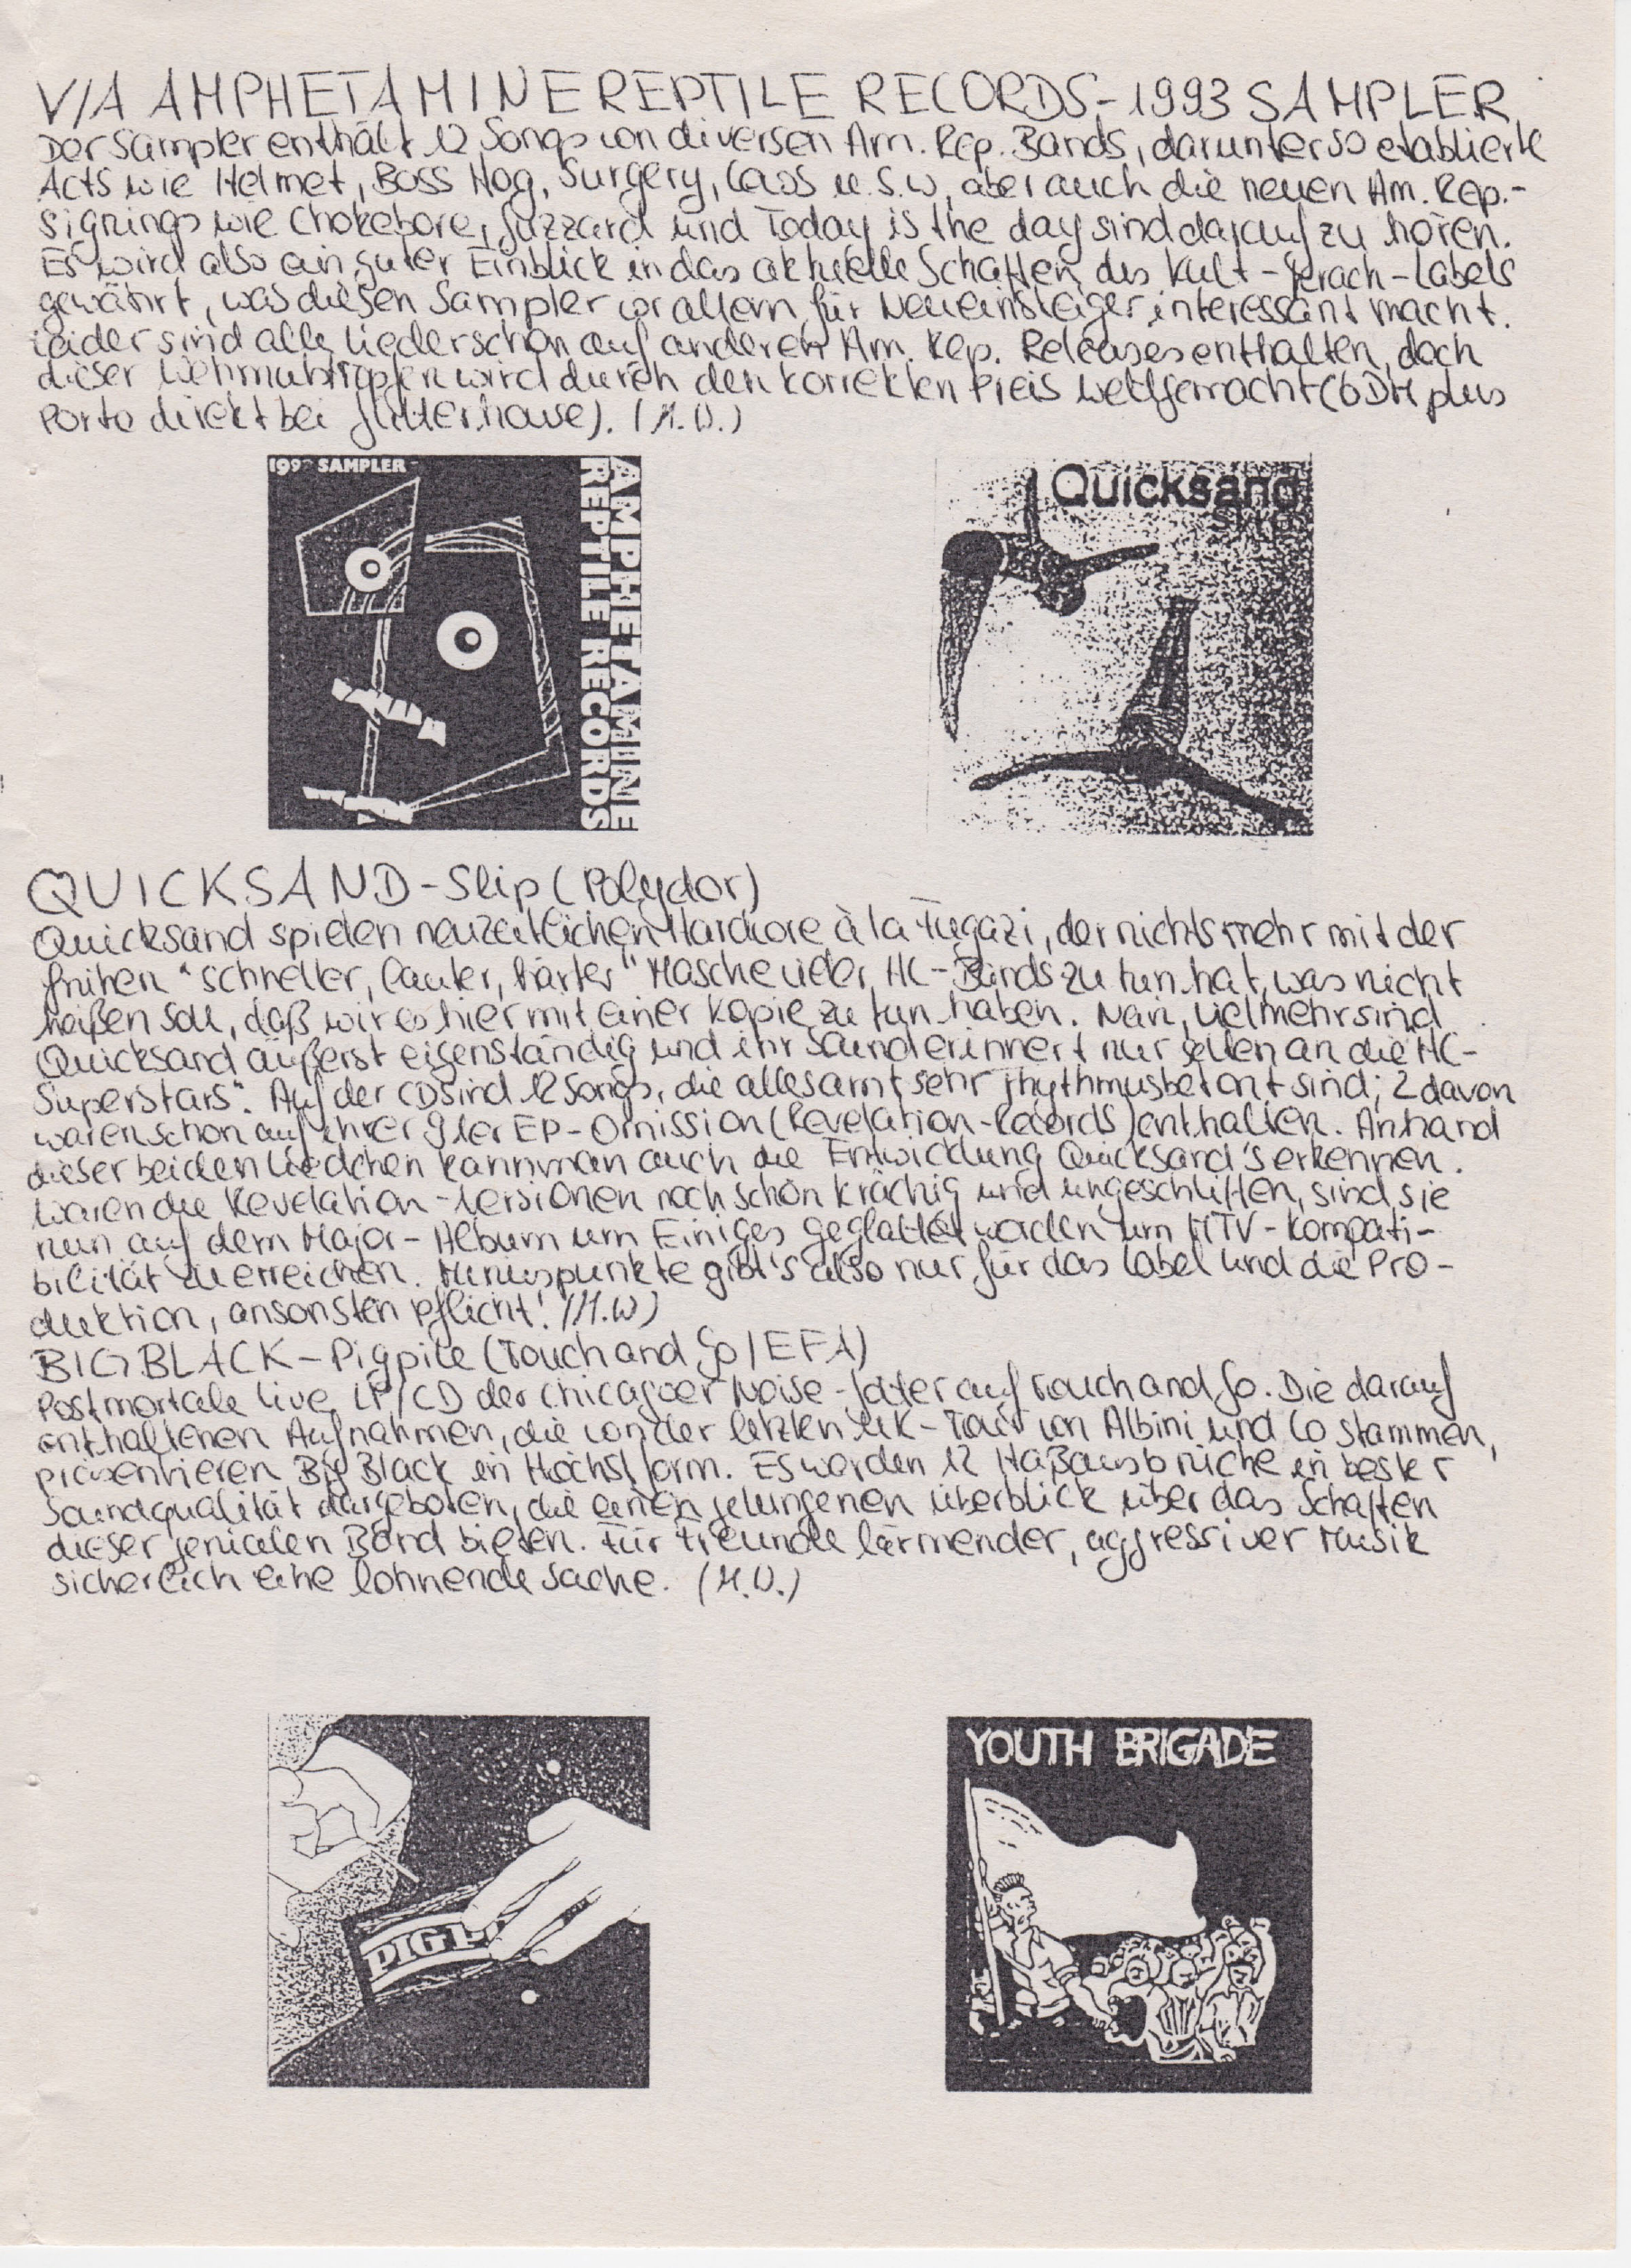 V/A AMPHETAMINE REPTILE RECORDS - 1993 SAMPLER
Der Sampler enthält 12 Songs von diversen Am. Rep. Bands, darunter so etablierte
Acts wie Helmet, Boss Hog, Surgery, Cows u.s.w, aber auch die neuen Am. Rep.-
Signings wie Chokebore, Guzzard und Today is the day sind darauf zu hören.
Es wird also ein guter Einblick in das aktuelle Schaffen des Kult-Krach-Labels
gewährt, was diesen Sampler vor allem für Neueinsteiger interessant macht.
Leider sind alle Lieder schon auf anderen Am. Rep. Releases enthalten, doch
dieser Wehmutstropfen wird durch den korrekten Preis wettgemacht (6DM plus
Porto direkt bei Glitterhouse). (M.W.)
1993 SAMPLER
AMPHETAMINE
REPTILE RECORDS
Quicksand
Slip
QUICKSAND - Slip (Polydor)
Quicksand spielen neuzeitlichen Hardcore à la Fugazi, der nichts mehr mit der
frühen "schneller, lauter, härter" Masche vieler HC-Bands zu tun hat, was nicht
heißen soll, daß wir es hier mit einer Kopie zu tun haben. Nein, vielmehr sind
Quicksand äußerst eigenständig und ihr Sound erinnert nur selten an die "HC-
Superstars". Auf der CD sind 12 Songs, die allesamt sehr rhythmusbetont sind; 2 davon
waren schon auf ihrer 91er EP-Omission (Revelation-Records) enthalten. Anhand
dieser beiden Liedchen kann man auch die Entwicklung Quicksand's erkennen.
Waren die Revelation-Versionen noch schön krachig und ungeschliffen, sind sie
nun auf dem Major-Album um Einiges geglättet worden um MTV-Kompati-
bilität zu erreichen. Minuspunkte gibt's also nur für das Label und die Pro-
duktion, ansonsten Pflicht! (M.W)
BIG BLACK - Pigpile (Touch and Go / EFA)
Postmortale Live LP/CD der Chicagoer Noise-Väter auf Touch and Go. Die darauf
enthaltenen Aufnahmen, die von der letzten UK-Tour von Albini und Co stammen,
präsentieren Big Black in Höchstform. Es werden 12 Haßausbrüche in bester
Soundqualität dargeboten, die einen gelungenen Überblick über das Schaffen
dieser genialen Band bieten. Für Freunde lärmender, aggressiver Musik
sicherlich eine lohnende Sache. (M.W.)
PIGP
YOUTH BRIGADE